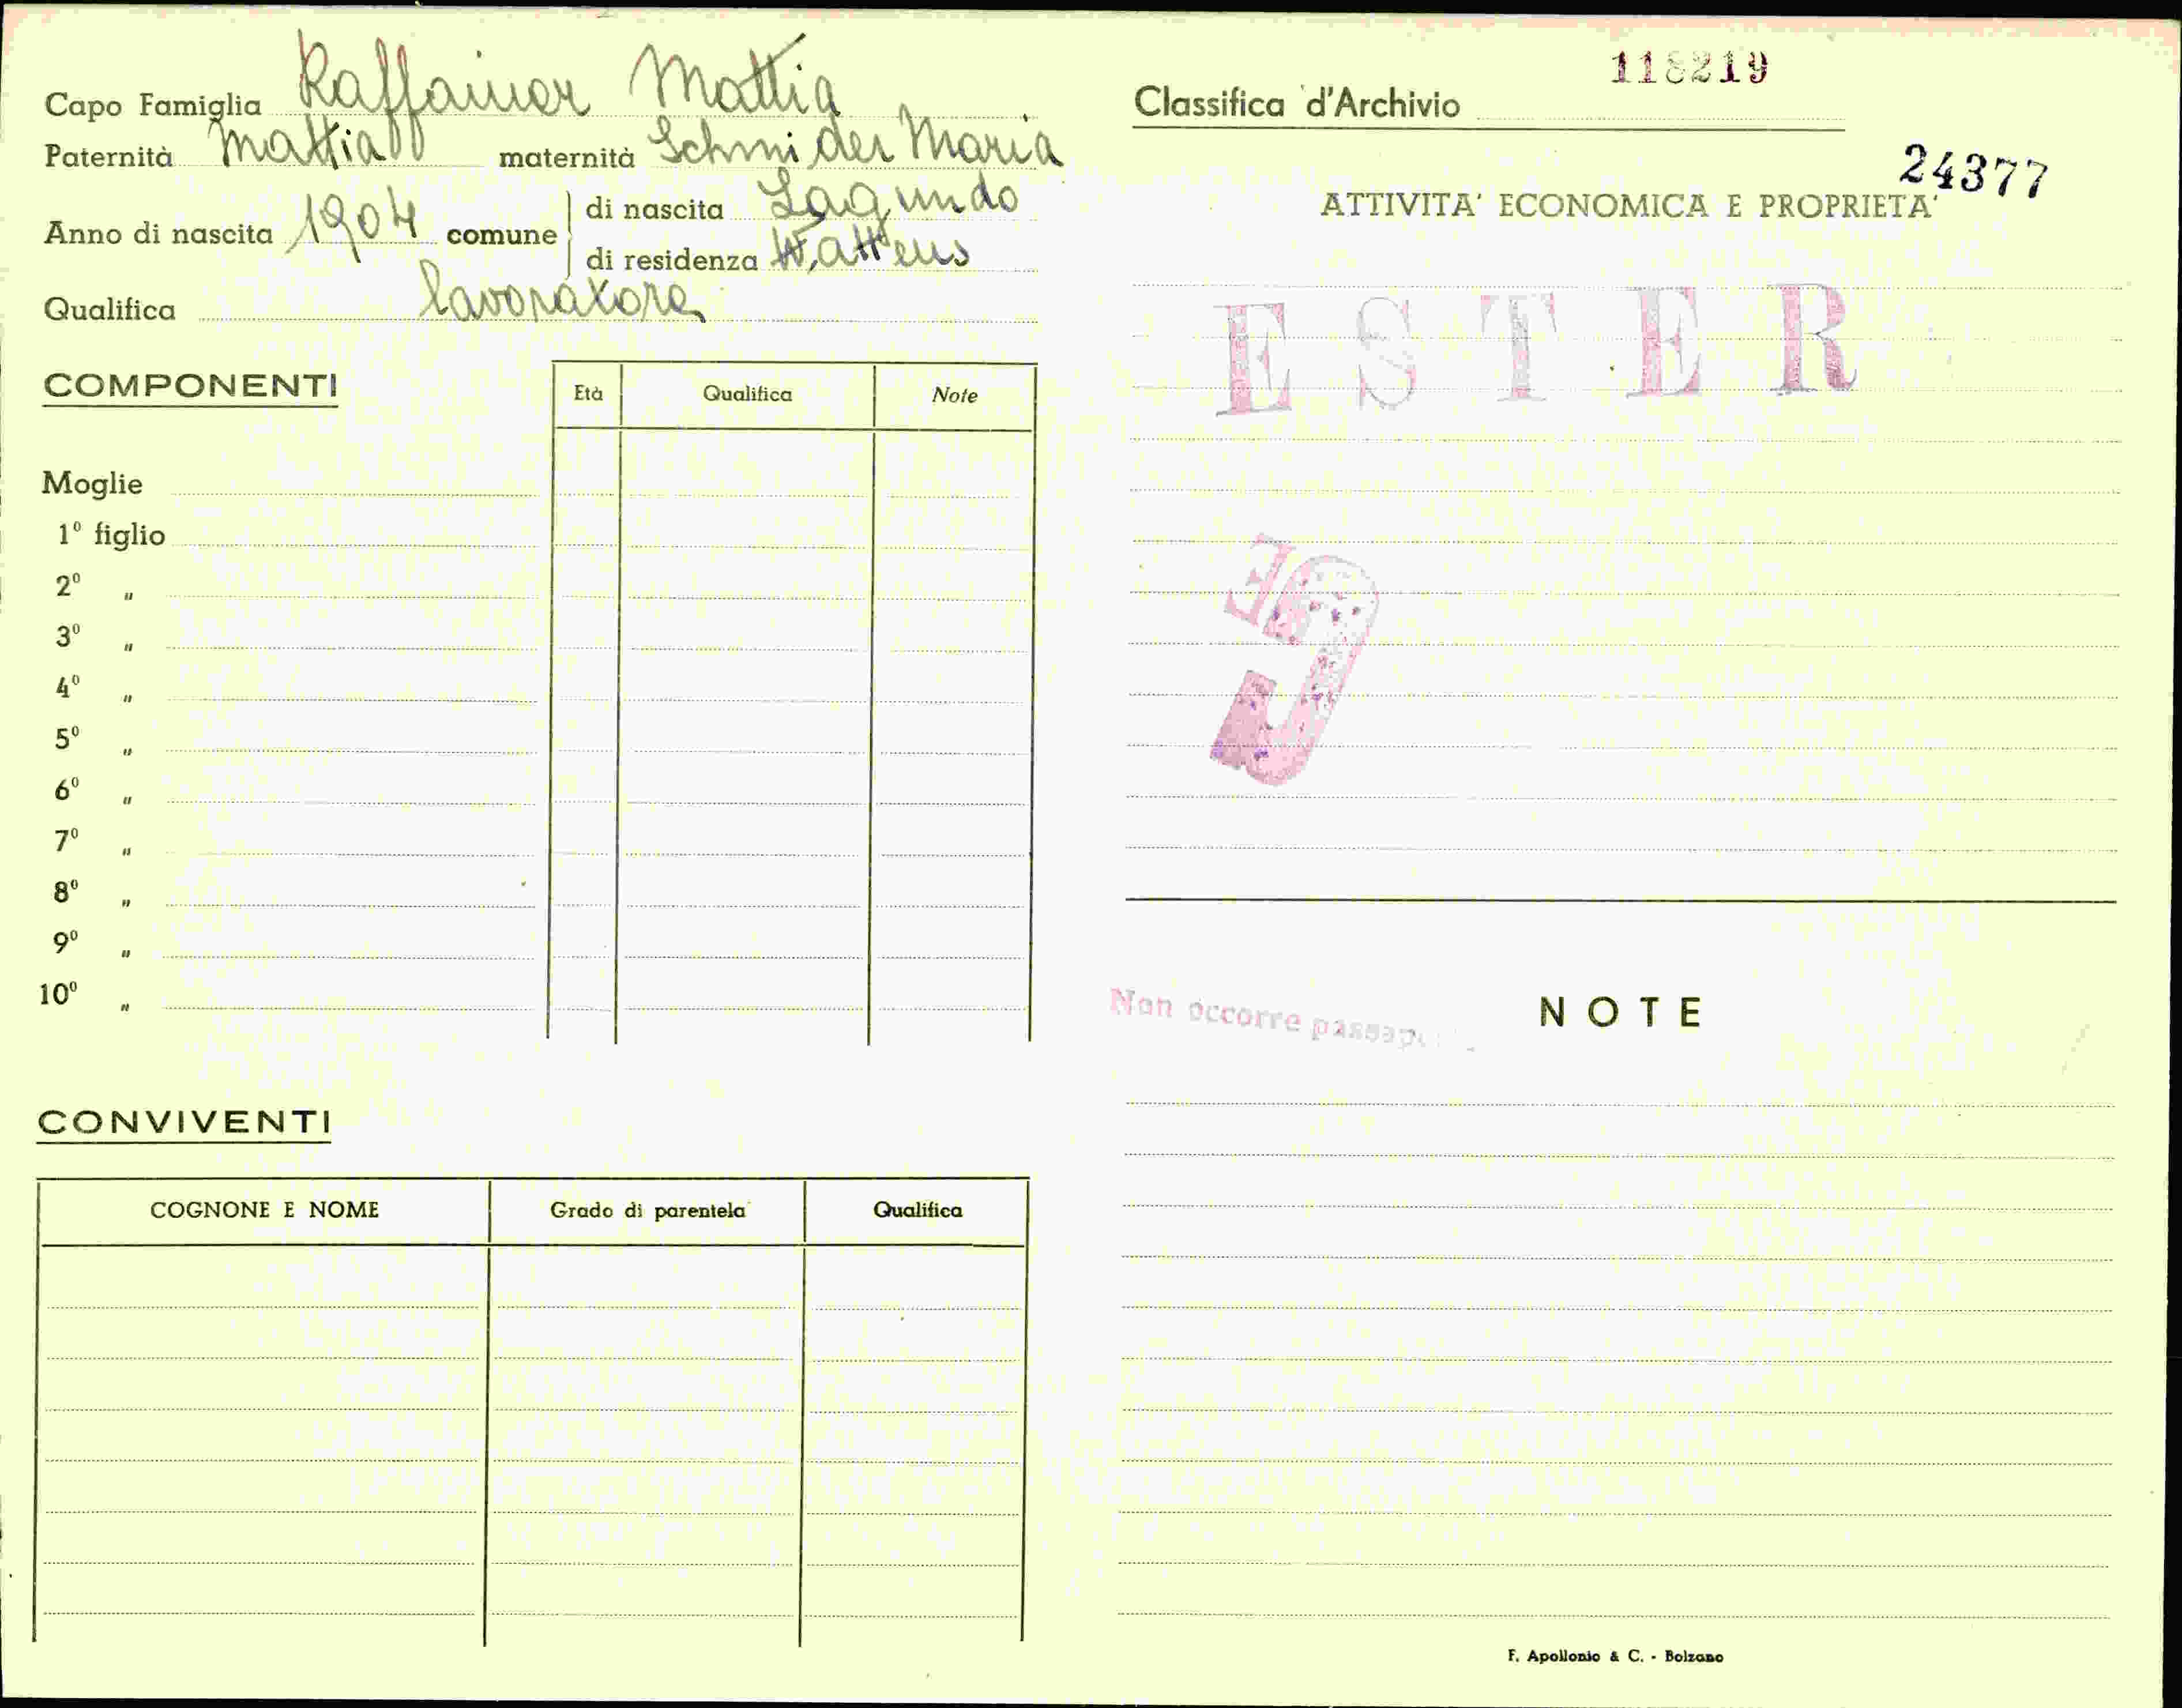 Capo Famiglia Raffainer Mattia
Paternità Mattia maternità Schmider Maria
Anno di nascita 1904 comune
di nascita Lagundo
di residenza Wattens
Qualifica lavoratore
COMPONENTI
Età Qualifica Note
Moglie
1º figlio
2º "
3º "
4º "
5º "
6º "
7º "
8º "
9º "
10º "
CONVIVENTI
COGNONE E NOME Grado di parentela Qualifica
118219
Classifica d'Archivio
24377
ATTIVITA' ECONOMICA E PROPRIETA'
ESTER
E
Non occorre
NOTE
F. Apollonio & C. - Bolzano